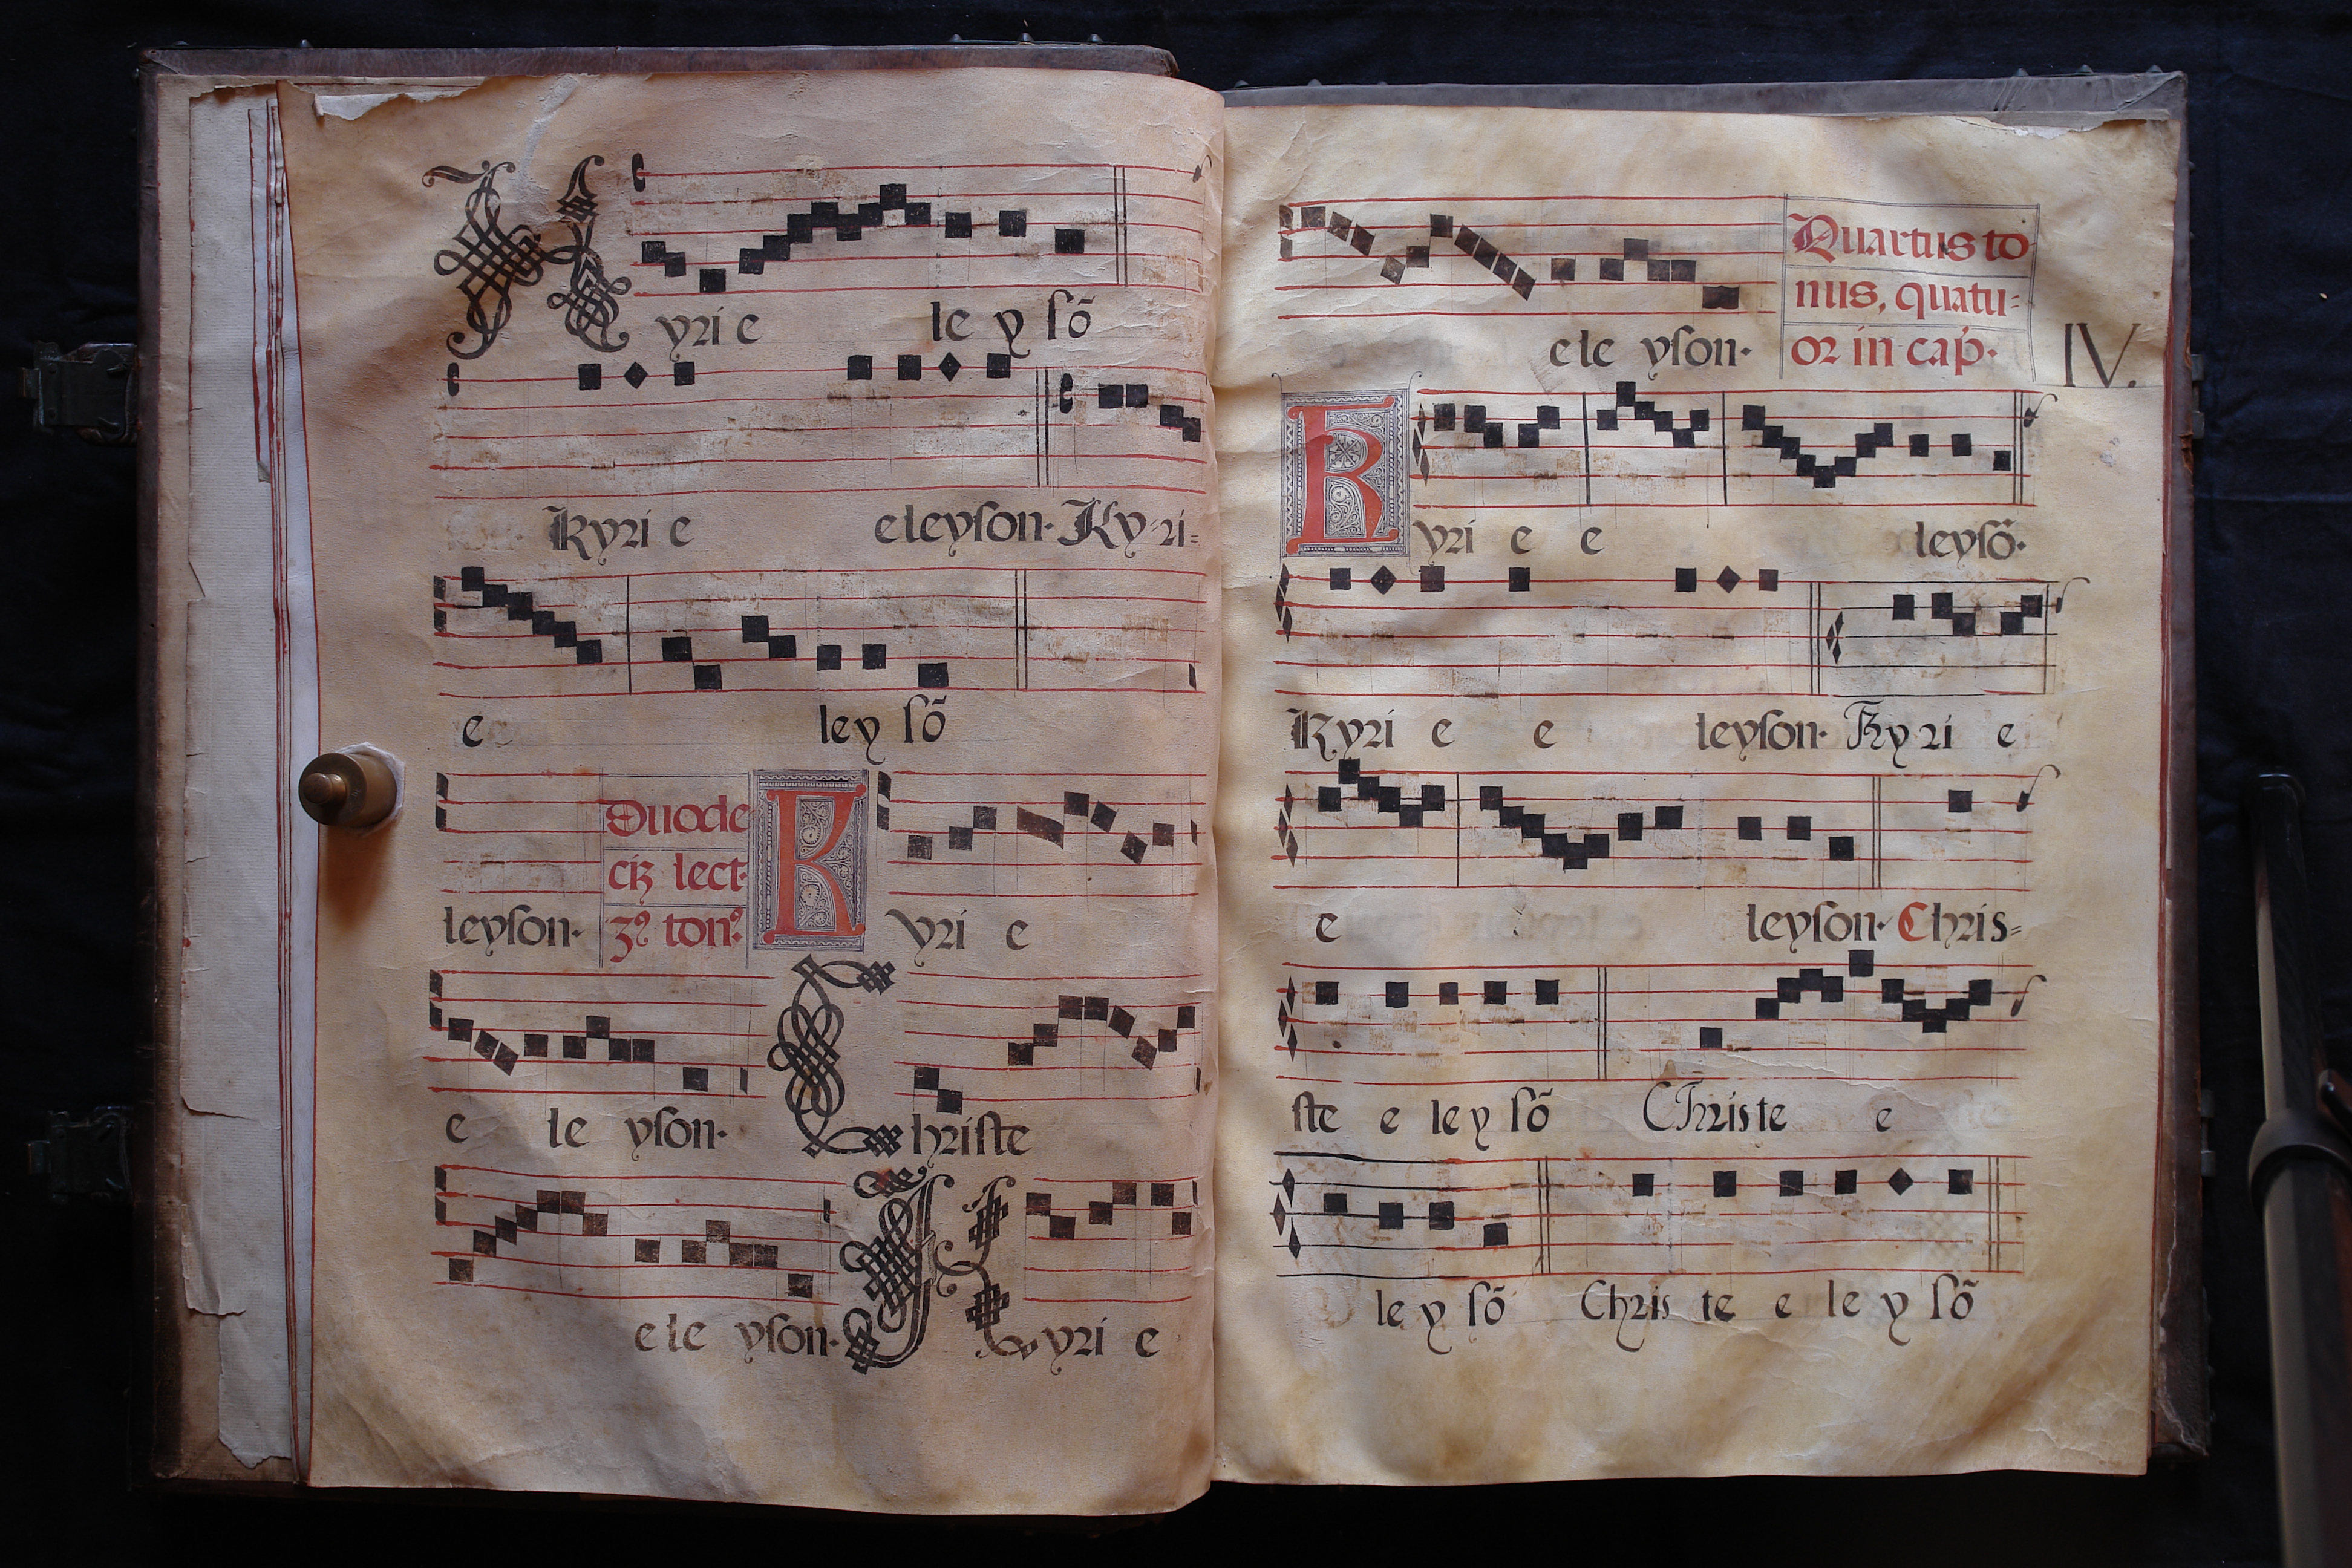 Kyrie leysõ
Kyrie eleyson. Ky-ri-
e leysõ
leyson. Duode
cïz lect.
3º tonº. Kyrie
e le yson. Christe
ele yson. Kyrie
ele yson. Quartus to
nus, quatu-
or in cap. IV.
Kyrie e leysõ.
Kyrie e leyson. Kyrie
e leyson. Chris-
ste e leysõ Christe e
leysõ Christe eleysõ